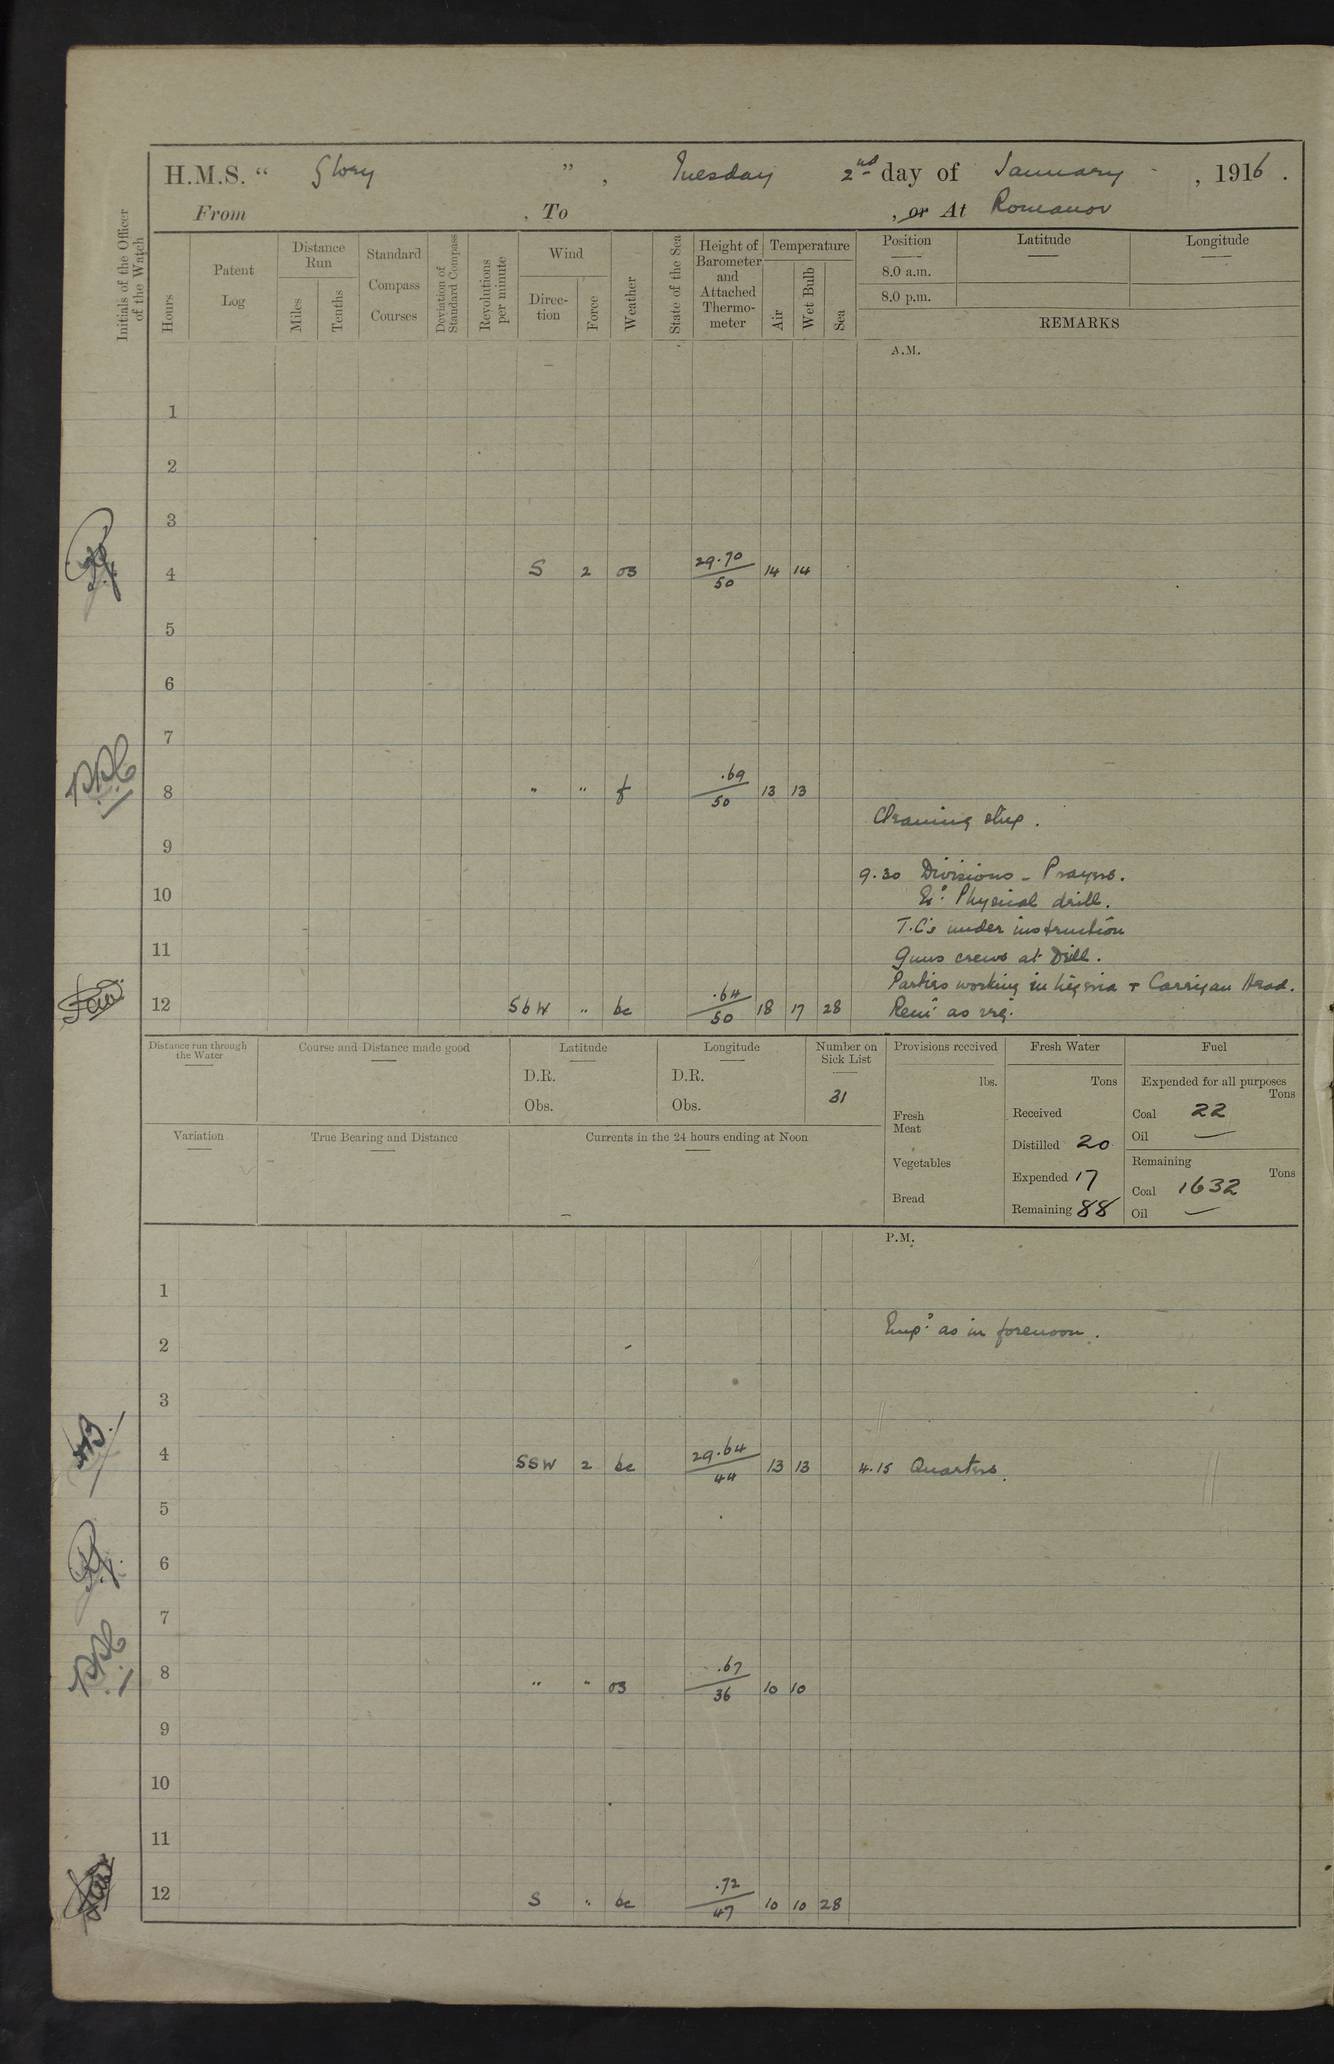 H.M.S. “ Glory ” , Tuesday 2nd day of January , 1916 .
From , To , or At Romanov
Initials of the Officer of the Watch
Hours
Patent Log
Distance Run
Miles
Tenths
Standard Compass Courses
Deviation of Standard Compass
Revolutions per minute
Wind
Direc-tion
Force
Weather
State of the Sea
Height of Barometer and Attached Thermo-meter
Temperature
Air
Wet Bulb
Sea
Position
8.0 a.m.
8.0 p.m.
Latitude
Longitude
REMARKS
A.M.
1
2
3
4 S 2 os 29.70/50 14 14
5
6
7
8 " " f .69/50 13 13
Cleaning ship.
9
9.30 Divisions - Prayers.
10
Physical drill.
T.C's under instruction
11
Guns crews at Drill.
Parties working in + Carrigan Head.
12 SbW " bc .64/50 18 17 28 as
Distance run through the Water
Course and Distance made good
Latitude
D.R.
Obs.
Longitude
D.R.
Obs.
Number on Sick List
31
Variation
True Bearing and Distance
Currents in the 24 hours ending at Noon
Provisions received
lbs.
Fresh Meat
Vegetables
Bread
Fresh Water
Tons
Received
Distilled 20
Expended 17
Remaining 88
Fuel
Expended for all purposes
Tons
Coal 22
Oil —
Remaining
Tons
Coal 1632
Oil —
P.M.
1
Emp: as in forenoon.
2
3
4 SSW 2 bc 29.64/44 13 13 4.15 Quarters.
5
6
7
8 " " os .67/36 10 10
9
10
11
12 S " bc .72/47 10 10 28